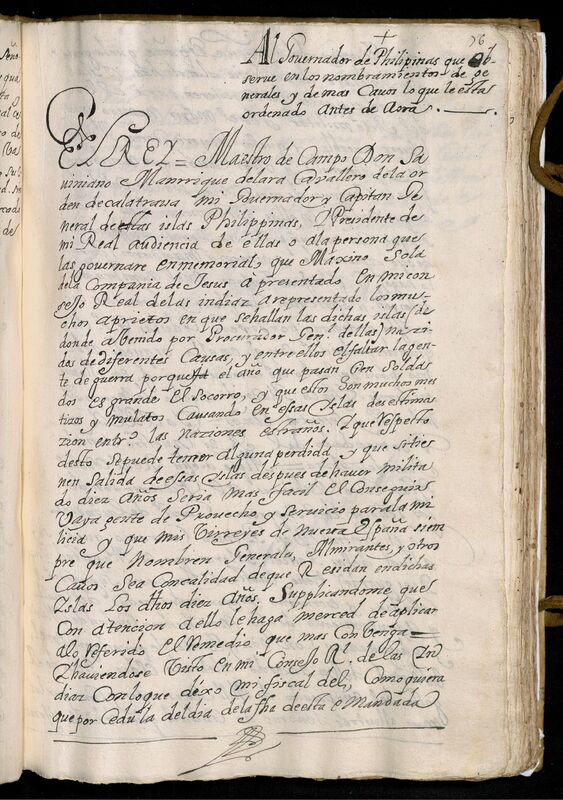 76
Al Governador de Philipinas que ob
serve en los nombramientos de ge
nerales y demas Cavos lo que le esta
ordenado Antes de Aora.
EL REI = Maestro de Campo Don Sa
viniano Manrrique delara Cavallero dela or
den de calatrava mi Governador y Capitan Ge
neral de essas islas Philippinas, y Presidente de
mi Real audiencia de ellas o ala persona que
las governare en memorial que Maxino Sola
dela Compania de Jesus à presentado en mi con
sejo Real delas indias a representado los mu-
chos aprietos en que se hallan las dichas islas (de
donde a Venido por Procurador Gen.l dellas) na zi
dos de diferentes Causas, y entre ellos el faltar la gen
te de guerra porque el año que pasan Cien Solda
dos es grande El socorro, y que estos son muchos mes
tizos y mulatos Causando En essas Islas desestima
zion entre las naziones estrañas. Y que respecto
desto se puede temer alguna perdida y que si tie
nen salida de essas Islas despues de haver milita
do diez Años seria mas facil El Conseguir
Vaya gente de Provecho y servicio para la mi
licia y que mis Virreyes de Nueva España siem
pre que Nombren Generales, Almirantes, y otros
Cavos sea Con calidad de que Residan en dichas
Islas Los dhos diez Años. Supplicandome que
Con atencion a ello le haga merced de aplicar
alo referido El remedio que mas Convenga =
Y haviendose Visto en mi Consejo R.l de las In
dias Con lo que dixo mi fiscal del, Como quiera
que por Cedula del dia de la fha de esta e Mandado